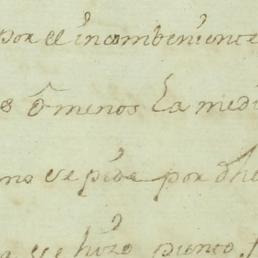 por el incombeniente
s ô menos La medi
no se pida por dhe
a se hizo punto